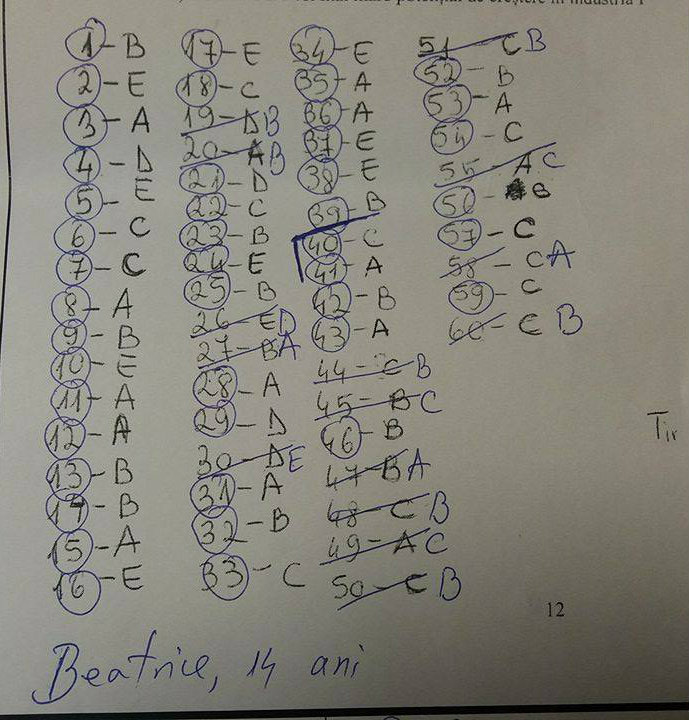 1-B
2-E
3-A
4-D
5-E
6-C
7-C
8-A
9-B
10-E
11-A
12-A
13-B
14-B
15-A
16-E
17-E
18-C
19-DB
20-AB
21-D
22-C
23-B
24-E
25-B
26-ED
27-BA
28-A
29-D
30-DE
31-A
32-B
33-C
34-E
35-A
36-A
37-E
38-E
39-B
40-C
41-A
42-B
43-A
44-CB
45-BC
46-B
47-BA
48-CB
49-AC
50-CB
51-CB
52-B
53-A
54-C
55-AC
56-B
57-C
58-CA
59-C
60-CB
Tir
12
Beatrice, 14 ani